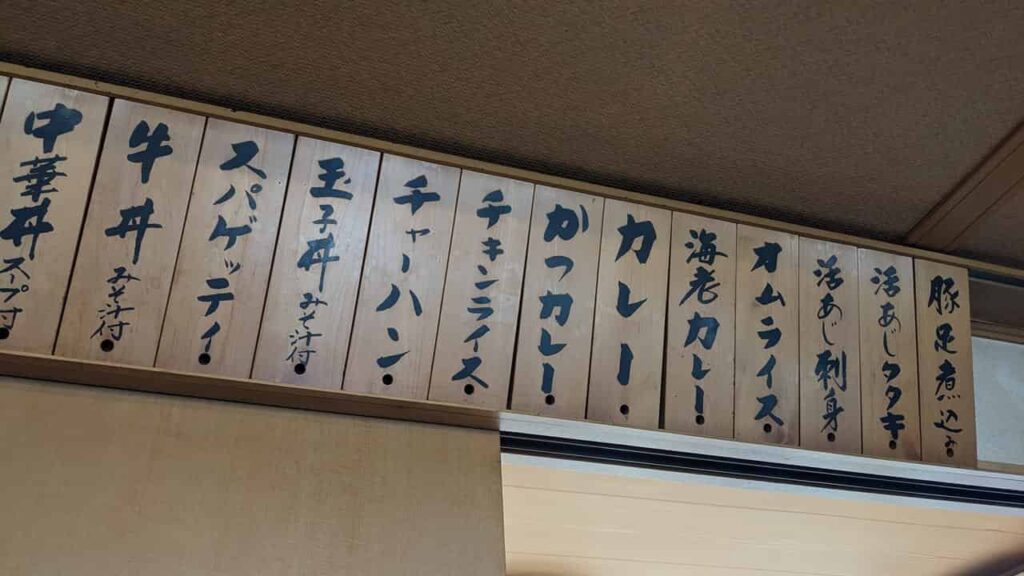 豚足煮込み
活あじタタキ
活あじ刺身
オムライス
海老カレー
カレー
かつカレー
チキンライス
チャーハン
玉子丼みそ汁付
スパゲッティ
牛丼みそ汁付
中華丼スープ付